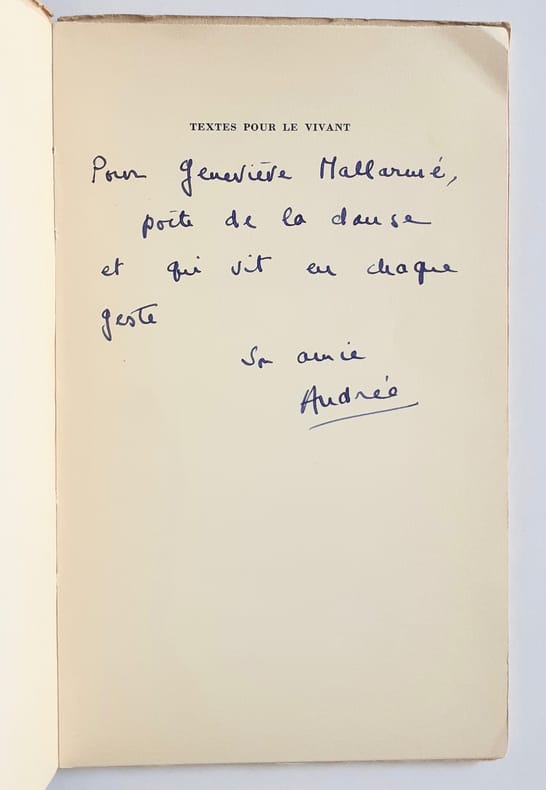 TEXTES POUR LE VIVANT
Pour Geneviève Mallarmé,
poète de la danse
et qui vit en chaque
geste
Son amie
Andrée